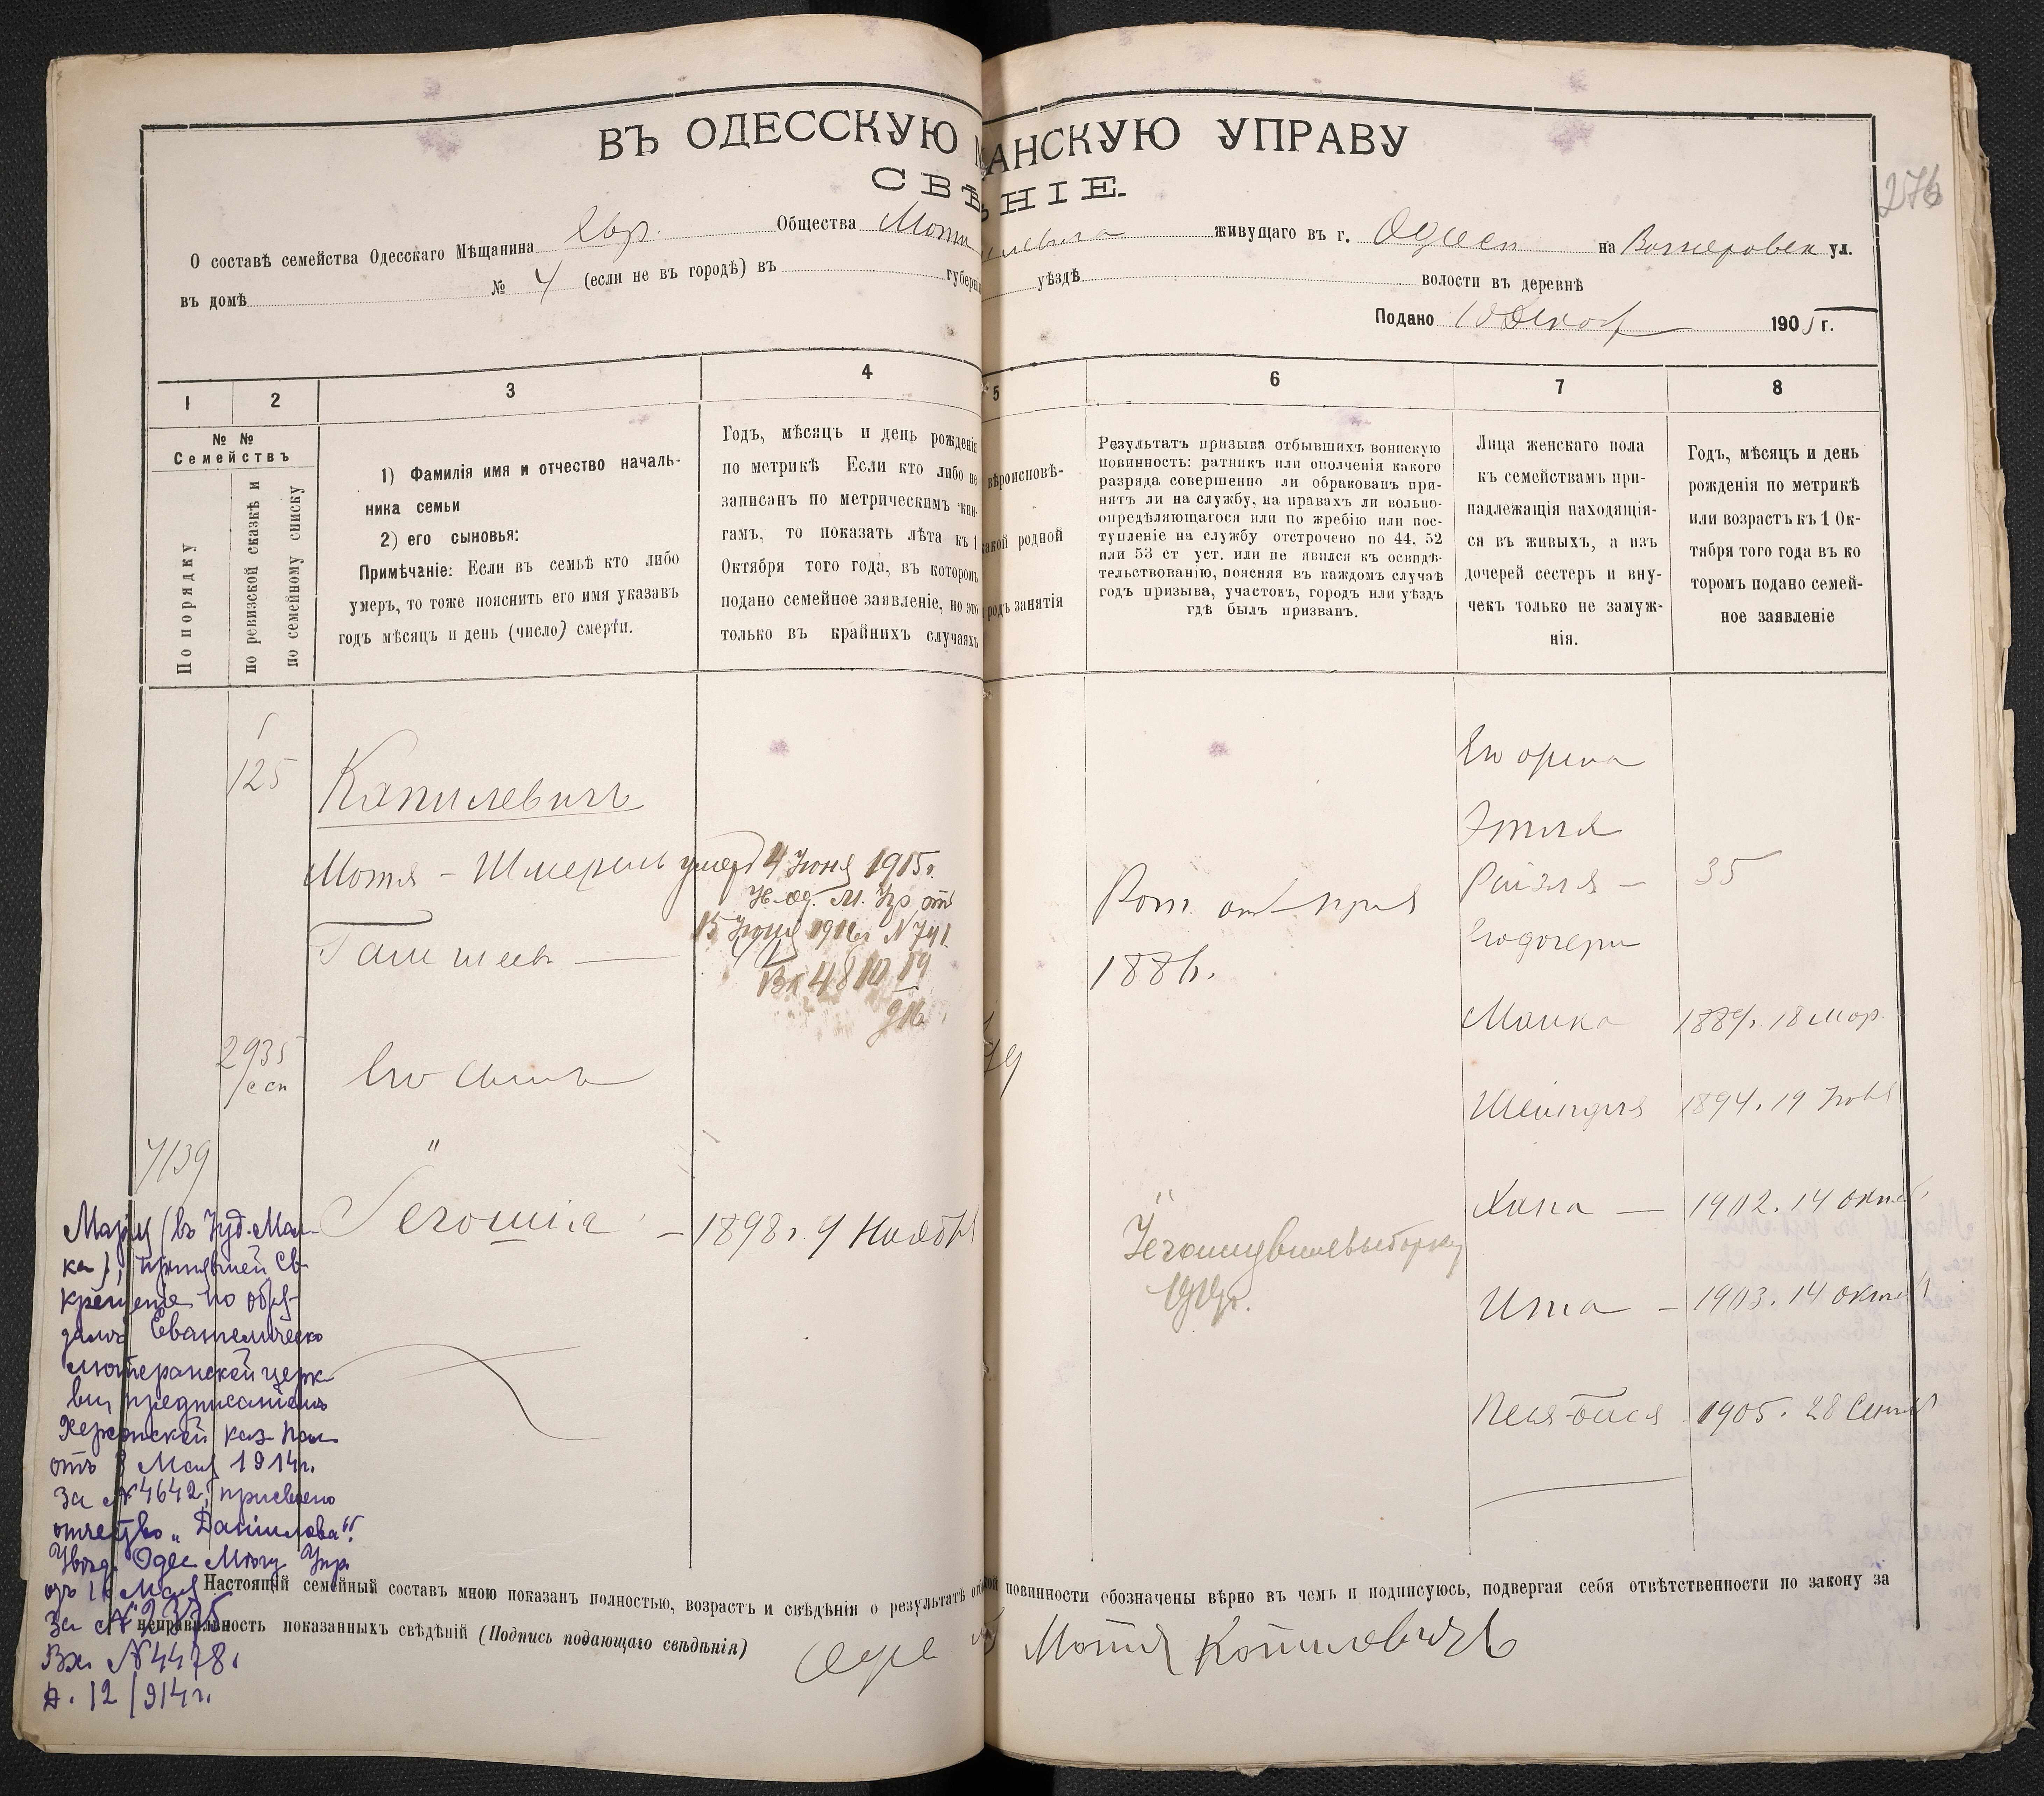 276
ВЪ ОДЕССКУЮ М АНСКУЮ УПРАВУ
СВѢ НІЕ.
О составѣ семейства Одесскаго Мѣщанина Евр. Общества живущаго въ г. Одессѣ на ул.
въ домѣ № 4 (если не въ городѣ) въ губерні уѣздѣ волости въ деревнѣ
Подано 10 1905 г.
1 2 3 4 5 6 7 8
№ №
Семействъ
По порядку
по ревизской сказкѣ и
по семейному списку
1) Фамилія имя и отчество началь-
ника семьи
2) его сыновья:
Примѣчаніе: Если въ семьѣ кто либо
умеръ, то тоже пояснить его имя указавъ
годъ мѣсяцъ и день (число) смерти.
Годъ, мѣсяцъ и день рожденія
по метрикѣ Если кто либо не
записанъ по метрическимъ кни-
гамъ, то показать лѣта къ 1
Октября того года, въ которомъ
подано семейное заявленіе, но это
только въ крайнихъ случаяхъ
вѣроисповѣ-
какой родной
родъ занятія
Результатъ призыва отбывшихъ воинскую
повинность: ратникъ или ополченія какого
разряда совершенно ли обракованъ при-
нятъ ли на службу, на правахъ ли вольно-
опредѣляющагося или по жребію или пос-
тупленіе на службу отсрочено по 44, 52
или 53 ст уст. или не явился къ освидѣ-
тельствованію, поясняя въ каждомъ случаѣ
годъ призыва, участокъ, городъ или уѣздъ
гдѣ былъ призванъ.
Лица женскаго пола
къ семействамъ при-
надлежащія находящія-
ся въ живыхъ, а изъ
дочерей сестеръ и вну-
чекъ только не замуж-
нія.
Годъ, мѣсяцъ и день
рожденія по метрикѣ
или возрастъ къ 1 Ок-
тября того года въ ко
торомъ подано семей-
ное заявленіе
125
Капилевичъ
Мотя - Шмериль умеръ 4 Іюня 1915г.
Ув. Од. М. Упр отъ
15 Іюня 1916г N 741
Вх 4810 19
916
2935
Его сынъ
7139
"
Іегошіа - 1898 г. 9 Ноября
Рат. опол
1886.
Іегошуа
1919г.
Его жена
Этля
Рейзля - 35
Его дочери
Малка 1889. 18 Мар.
Шейндля 1894. 19
Хана - 1902. 14 Октяб
Ита - 1903. 14 Октяб
Песя-Бася - 1905. 28 Сентяб
Марiи (въ Іуд. Мал-
ка), принявшей Св.
крещеніе по обря-
дамъ Евангелическо
лютеранской церк-
ви, предписаніемъ
Херсонской каз. Пал.
отъ 8 Мая 1914г.
за N 4642, присвоено
отчество „Даніилова“.
Увѣд. Одес. Мѣщ. Упр.
отъ 16 Мая
за N 2375
Вх. N 4478.
д. 12/914г.
Настоящій семейный составъ мною показан полностью, возрастъ и свѣдѣнія о результатѣ от ой повинности обозначены вѣрно въ чемъ и подписуюсь, подвергая себя отвѣтственности по закону за
неправильность показанныхъ свѣдѣній (Подпись подающаго свѣдѣнія)
Мотя Копилевичъ